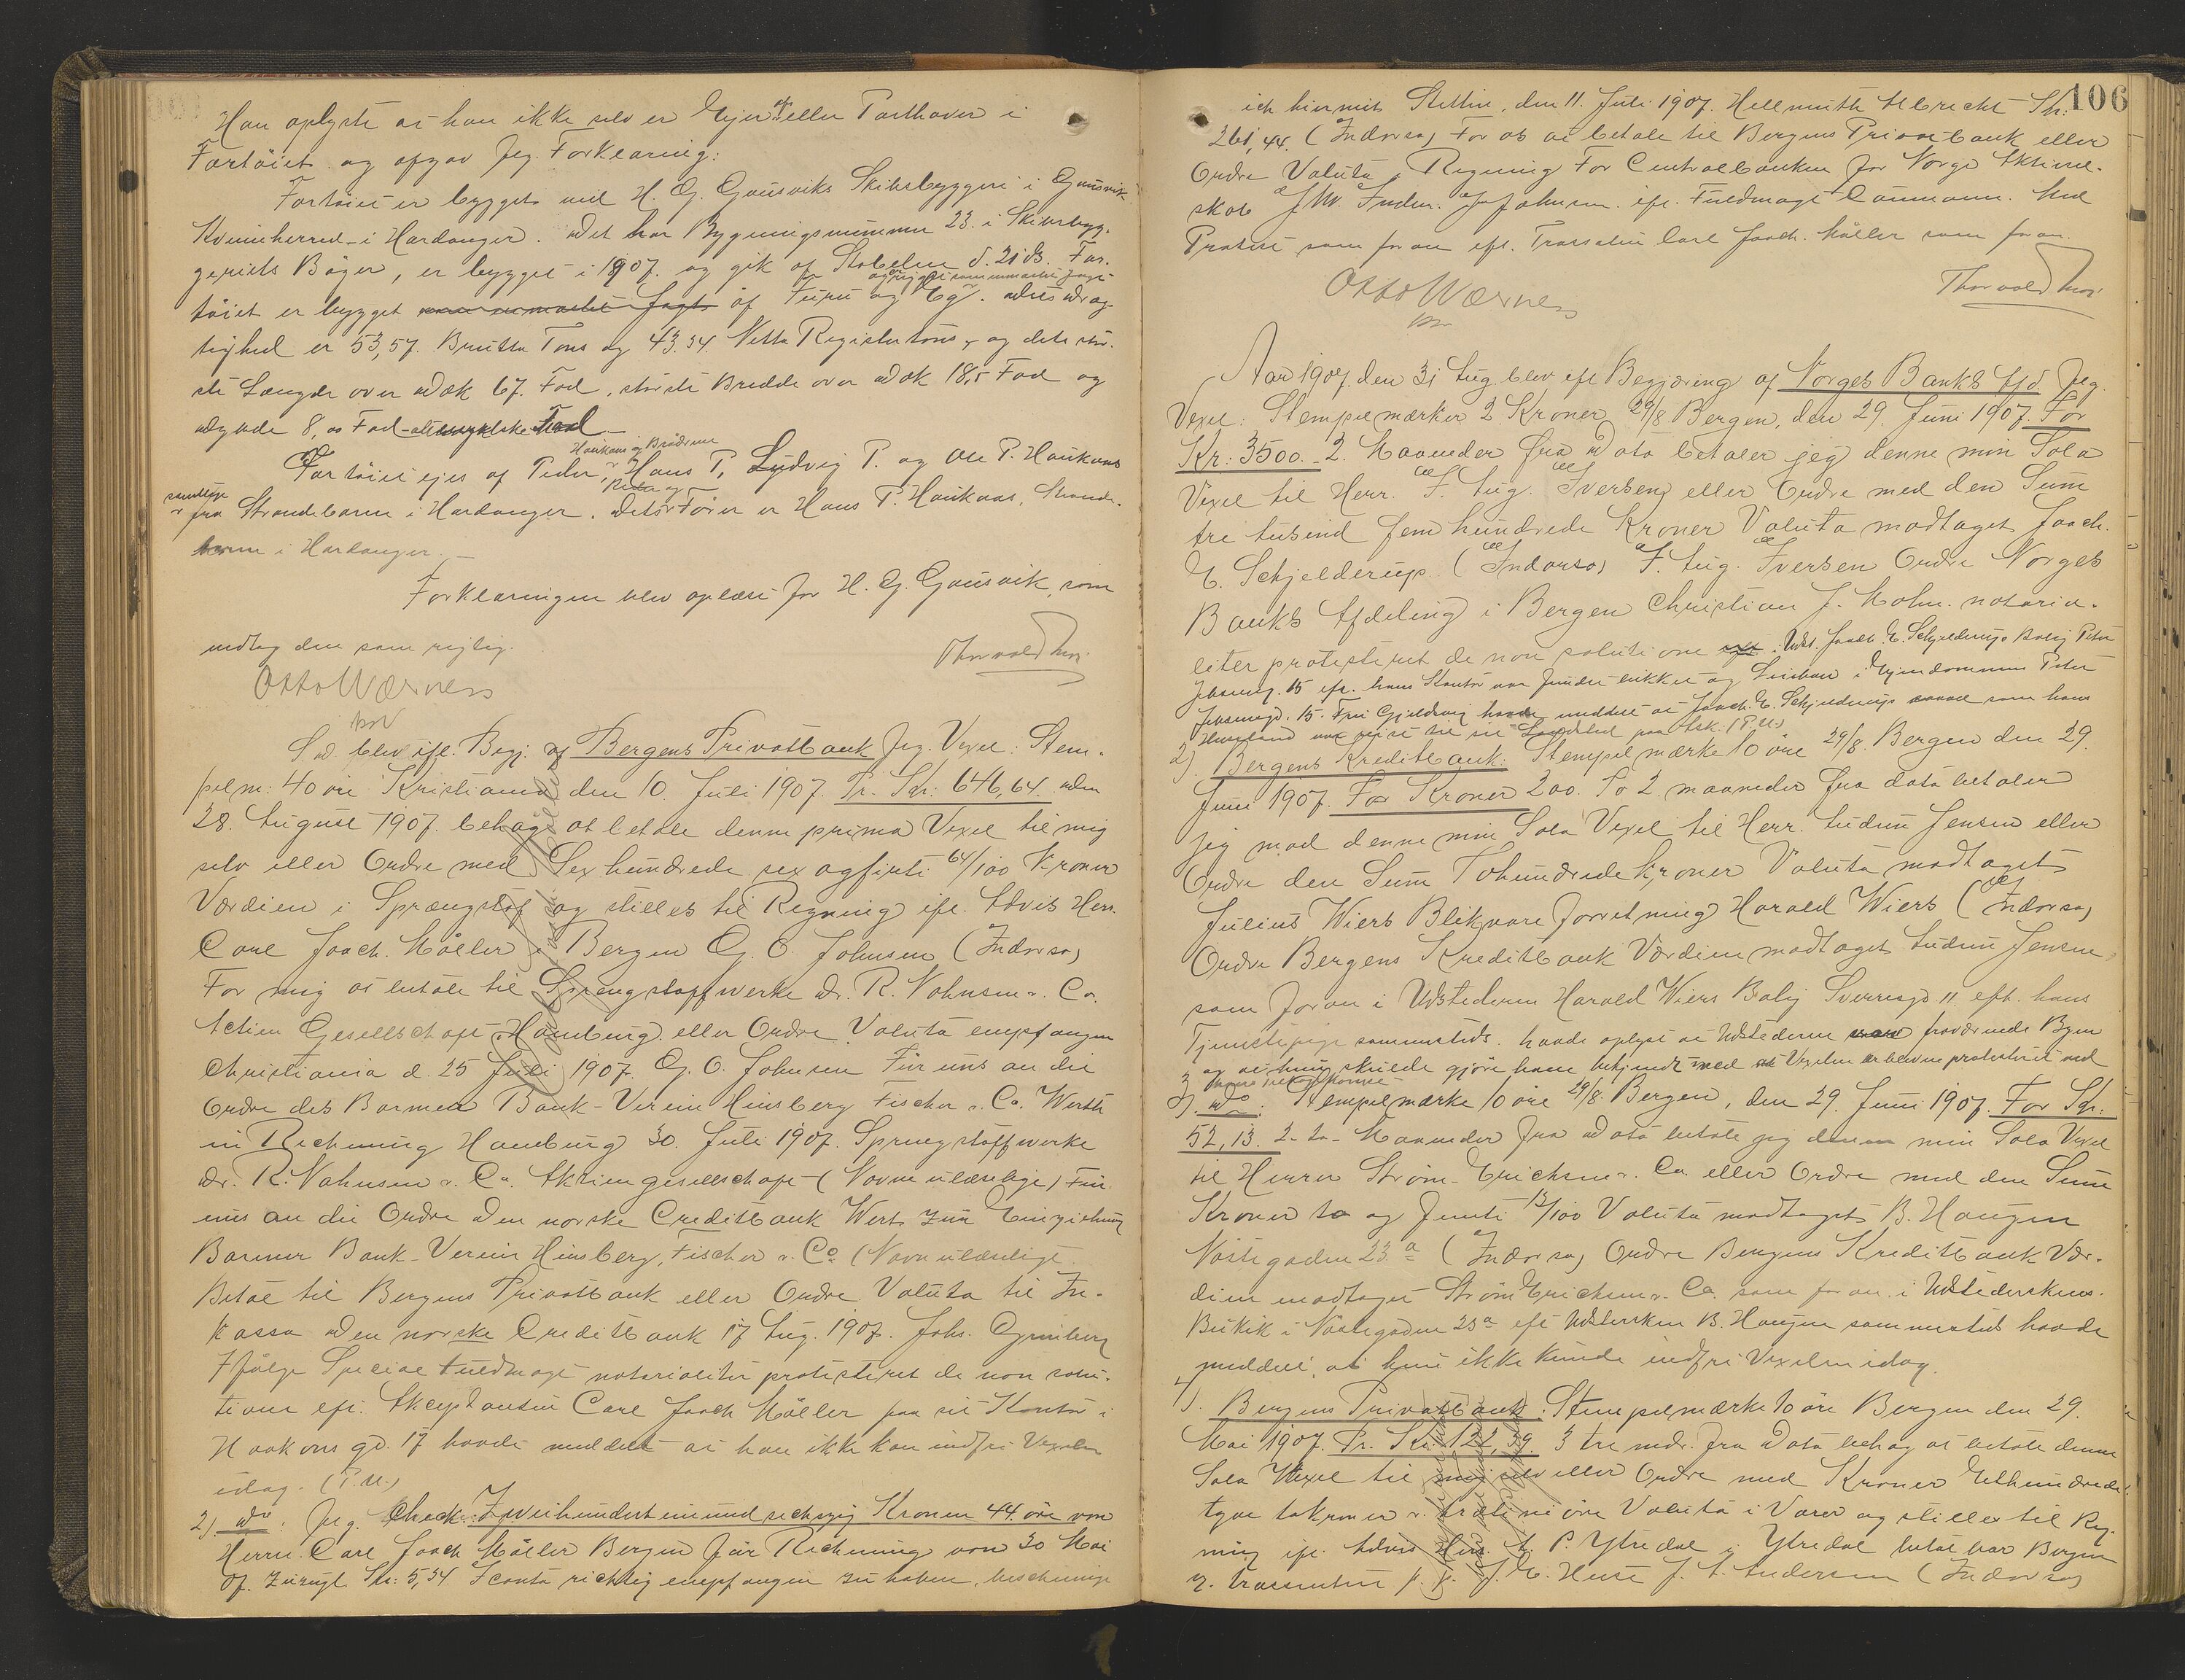 Han oplyste at han ikke selv er Ejer af eller Parthaver i
Fartöiet og afgav flg. Forklaring:
Fartöiet er bygget ved H. G. Gausviks Skibsbyggeri i Gausvik
Kvinnherred i Hardanger. Det har Bygningsnummer 23 i Skibsbyg-
geriets Böger, er bygget i 1907 og gik af Stabelen d. 21 ds. Far-
töiet er bygget af Furu og Eg. dets Dræg-
tighed er 53,57 Brutto Tons og 43.34 Netto Registertons, og dets stör-
ste Længde over Dæk 67. Fod, störste Bredde over Dæk 18,5 Fod og
Dybde 8, Fod
Haukaas og Brödrene
Fartöiet ejes af Peder, Hans P, Ludvig P. og Ole P. Haukaas
samtlige
fra Strandebarm i Hardanger. Dets Förer er Hans P. Haukaas, Strande-
barm i Hardanger.
Forklaringen blev oplæst for H. G. Gausvik, som
vedtog den som rigtig.
Otto Wærness
Thorvald
S D blev eft. Begj. af Bergens Privatbank flg. Vexel: Stem-
pelm: 40 öre Kristiania den 10. Juli 1907. Pr. Skr: 646,64. den
28. August 1907. behag at betale denne prima Vexel til mig
selv eller Ordre med Sex hundrede sex og firti 64/100 Kroner
Værdien i Sprængstof og stilles til Regning eft. Advis Herr.
Carl Joach. Möller i Bergen G. O. Johnsen (Indorso)
For mig at betale til Sprengstoffwerke Dr. R. Nahnsen & Co.
Actien Gesellschaft Hamburg eller Ordre Valuta empfangen
Christiania d. 25 Juli 1907. G. O. Johnsen Für uns an die
Ordre des Barmer Bank-Verein Hinsberg Fischer & Co. Werth
in Rechnung Hamburg 30. Juli 1907. Sprengstoffwerke
Dr. R. Nahnsen & Co. Aktiengesellschaft (Navne ulæselige) Für
uns an die Ordre Den norske Creditbank Wert zum Einziehung
Barmer Bank-Verein Hinsberg, Fischer & Co (Navn ulæselige
Betal til Bergens Privatbank eller Ordre Valuta til In-
kasso Den norske Creditbank 17 Aug. 1907. Johs. Grünberg
Ifölge Special Fuldmagt notarialiter protesteret de non solu-
tione eft. Akceptanten Carl Joach Möller paa sit Kontor i
Haakonsgd. 17 havde meddelt at han ikke kan indfri Vexelen
idag. (P.M.)
2) Do: flg. Check: Zweihundert einundsechszig Kronen 44. öre von
Herrn Carl Joach Möller Bergen für Rechnung von 30 Mai
Skr: 5,34 Sconto richtig empfangen zu haben, bescheinige
106
ich hiermit Stettin, den 11. Juli 1907. Hellmuth Albrecht Skr.
261,44. (Indorso) For os at betale til Bergens Privatbank eller
Ordre Valuta i Regning For Centralbanken for Norge Aktiesel-
skab
Protest som foran eft. Trassaten Carl Joach. Möller som foran.
Otto Wærness
Thorvald
Aar 1907. den 31 Aug. blev eft Begjæring af Norges Banks Afd flg.
Vexel: Stempelmærker 2 Kroner 29/8 Bergen, den 29. Juni 1907. For
Kr: 3500. 2. Maaneder fra Dato betaler jeg denne min Sola
Vexel til Herr. F. Aug. Iversen eller Ordre med den Sum
tre tusind fem hundrede Kroner Valuta modtaget Joach.
E. Schjelderup. (Indorso) F. Aug. Iversen Ordre Norges
Banks Afdeling i Bergen Christian J. Mohn. notaria-
liter protesteret de non solutione Udst. Joach E. Schjelderups Bolig Peter
Jebsensg. 15 eft. hans Kontor var funden lukket og i Ejendommen Peter
Jebsensgd. 15. Fru Gjeldsvig havde meddelt at Joach. E. Schjelderup som hans
Husstand var reist til sit Landsted paa Ask. (P.M)
2). Bergens Kreditbank: Stempelmærke 10 öre 29/8. Bergen den 29.
Juni 1907. For Kroner 200. To 2. maaneder fra dato betaler
jeg mod denne min Sola Vexel til Herr. Ludvig Jensen eller
Ordre den Sum Tohundrede kroner Valuta modtaget
Julius Wiers Blikvareforretning Harald Wiers (Indorso)
Ordre Bergens Kreditbank Værdien modtaget Ludvig Jensen,
som foran i Udstederen Harald Wiers Bolig Sverresgd. 11. eft. hans
Tjenestepige sammesteds. havde oplyst at Udstederen fraværende Byen
og at hun skulde gjöre ham bekjendt med at Vexelen er bleven protesteret ved
hans Hjemkomst
3). Do: Stempelmærke 10 öre 29/8. Bergen, den 29. Juni 1907. For Skr:
52,13. 2-to- Maaneder fra Dato betale jeg denne min Sola Vexel
til Herrer Ström-Erichsen & Co eller Ordre med den Sum
Kroner to og femti 13/100 Valuta modtaget B. Haugen
Nöstegaden 23a (Indorso) Ordre Bergens Kreditbank Vær-
dien modtaget Ström Erichsen & Co. som foran i Udstederskens
Butik i Nöstegaden 23a eft Udstersken B. Haugen sammesteds havde
meddelt, at hun ikke kunde indfri Vexelen idag.
4). Bergens Privatbank: Stempelmærke 10 öre Bergen den 29.
Mai 1907. Pr. Kr. 122,39. 3 tre mdr. fra Dato behag at betale denne
Sola Vexel til mig selv eller Ordre med Kroner Ethundrede
tyve to kroner & trætini öre Valuta i Varer og stilles til Reg-
ning eft. Advis Herr. A. P. Ytredal i Ytredal betalbar Bergen
J. A. Andersen (Indorso)